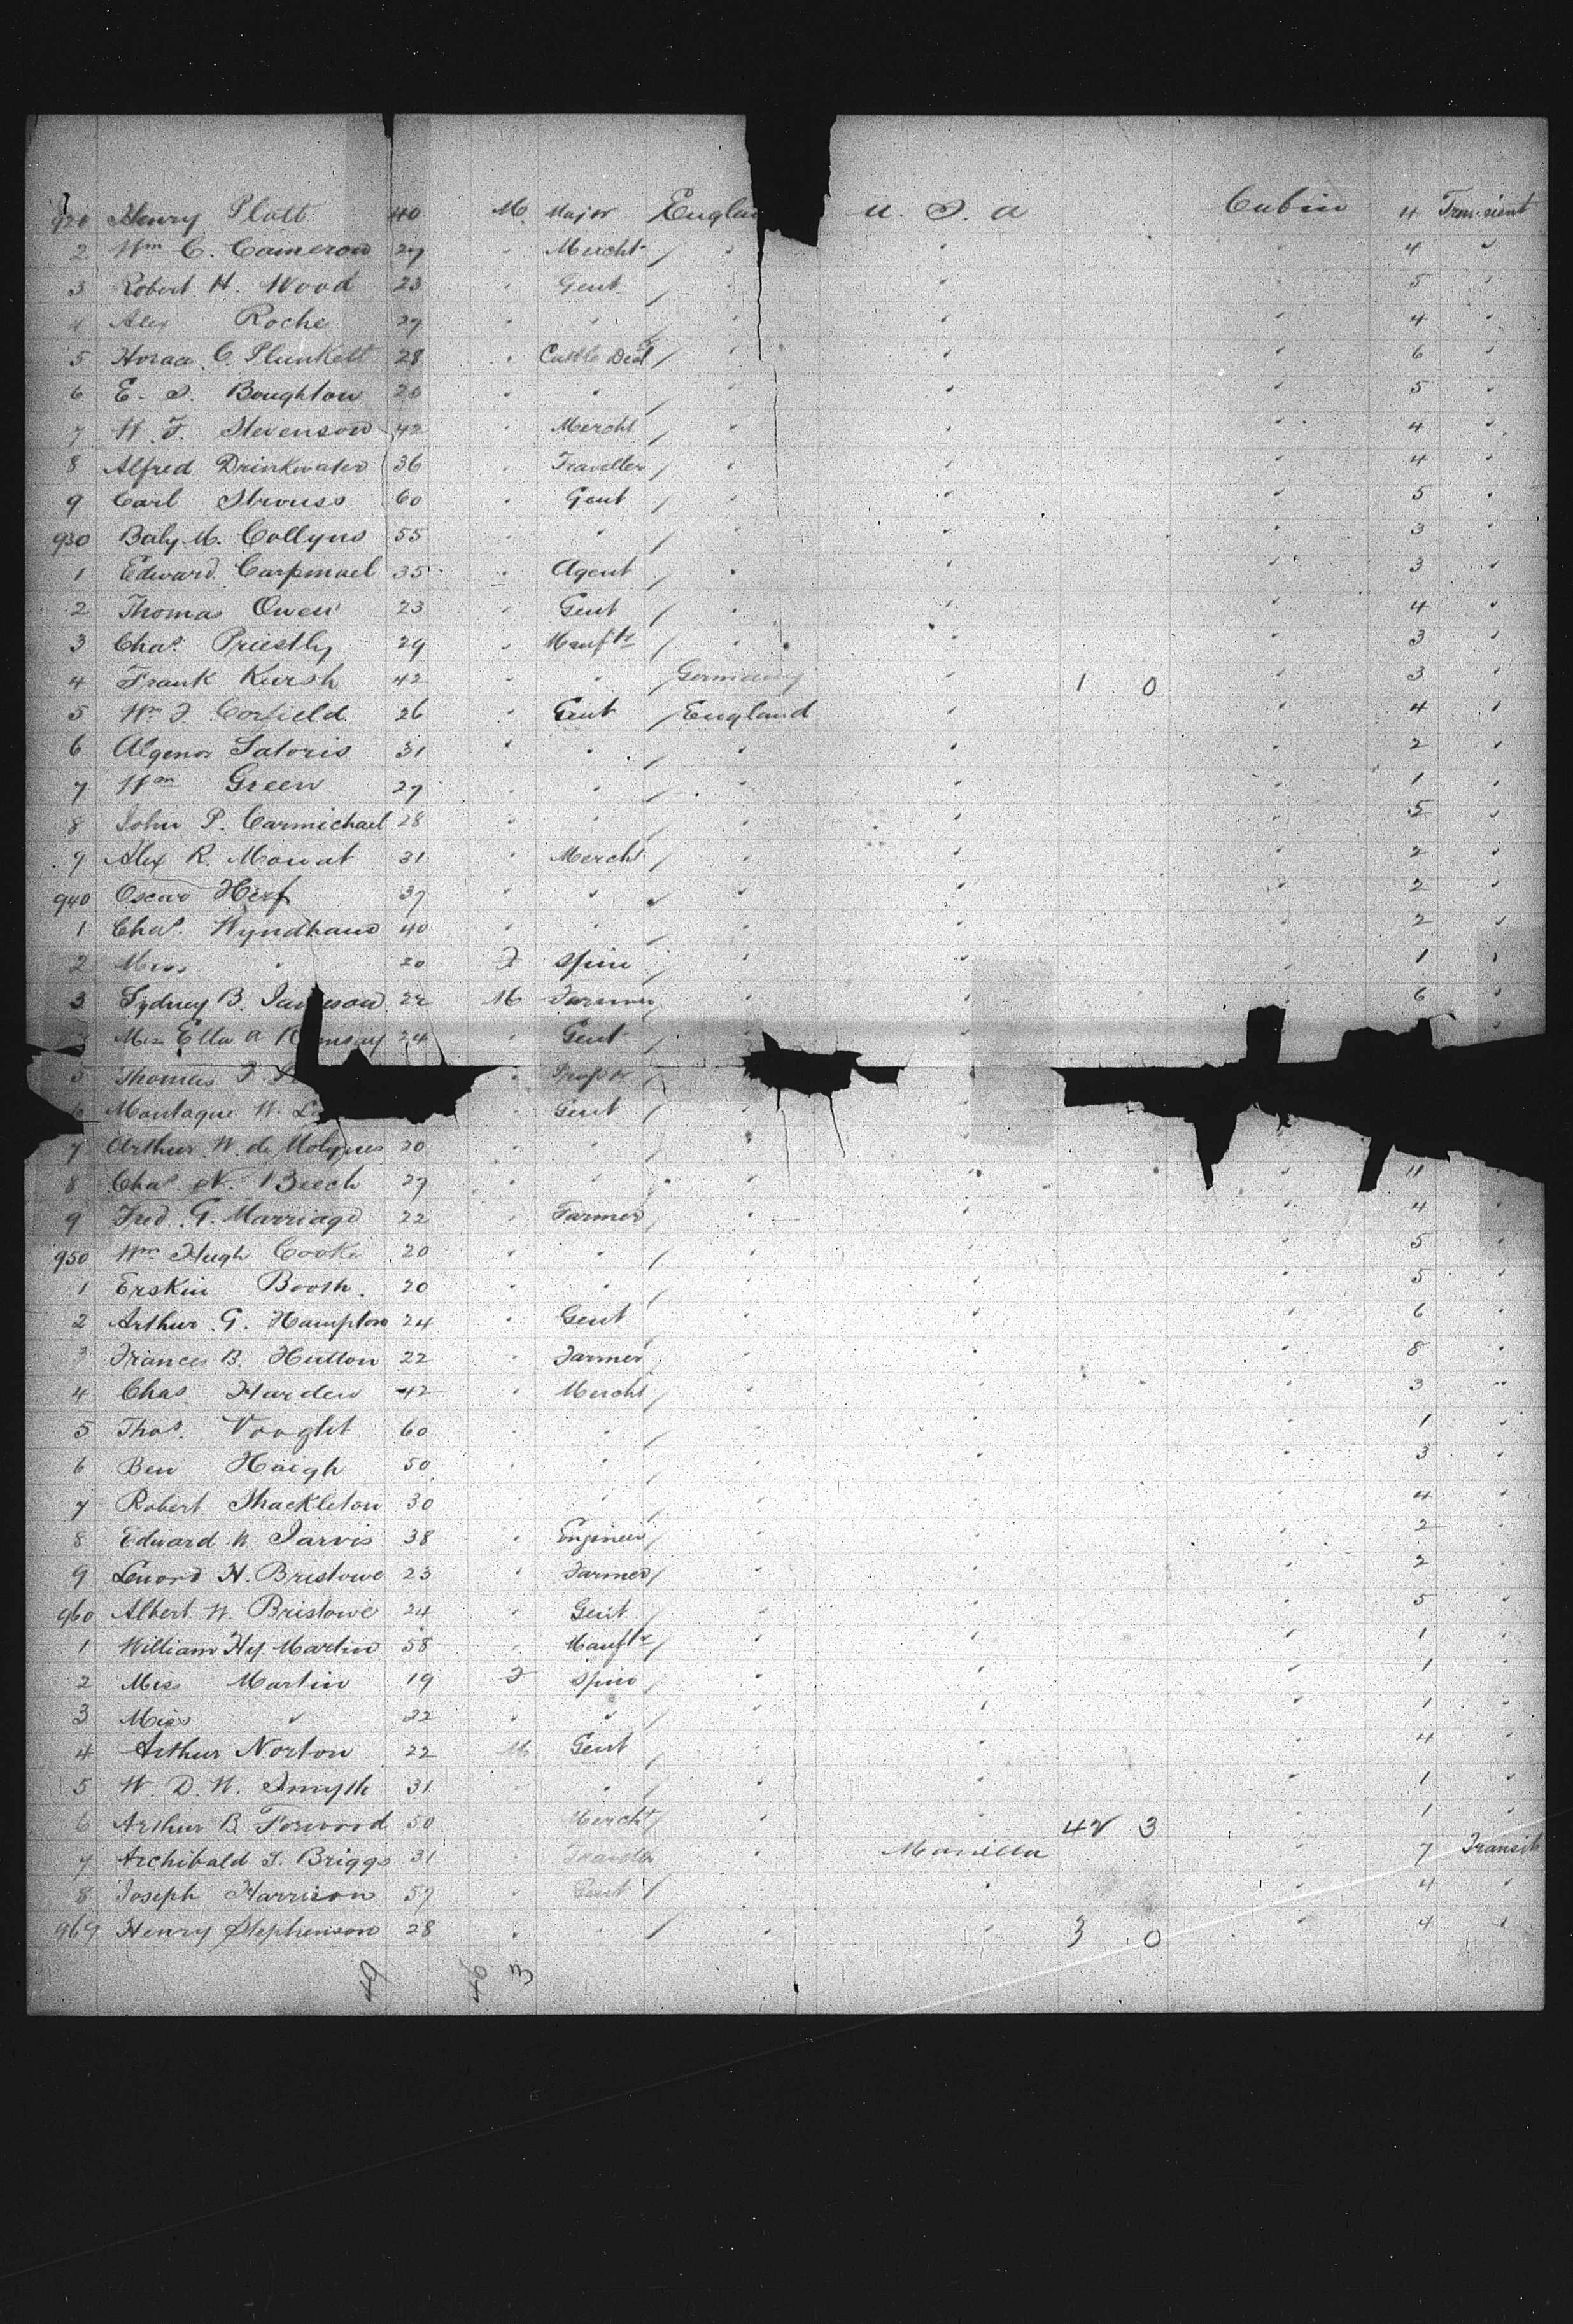 920 Henry Platt 40 M. Major Englan U. S. A Cabin 4 Transient
2 Wm C. Cameron 27 " Mercht / " " " 4 "
3 Robert H. Wood 23 " Gent / " " 5 "
4 Alex Roche 27 " " / " " " 4 "
5 Horace C. Plunkett 28 " Cattle Deal / " " " 6 "
6 E. S. Boughton 26 " " / " " " 5 "
7 W. F. Stevenson 42 " Mercht / " " " 4 "
8 Alfred Drinkwater 36 " Traveller / " " " 4 "
9 Carl Strauss 60 " Gent / " " " 5 "
930 Baly M. Collyns 55 " " / " " " 3 "
1 Edward Carpmael 35 " Agent / " " " 3 "
2 Thomas Owen 23 " Gent / " " " 4 "
3 Chas. Priestly 29 " Manftr / " " " 3 "
4 Frank Kursh 42 " " Germany " 1 0 " 3 "
5 Wm F. Corfield 26 " Gent / England " " 4 "
6 Algenor Satoris 31 " " / " " " 2 "
7 Wm Green 27 " " / " " " 1 "
8 John P. Carmichael 28 " " / " " " 5 "
9 Alex R. Mowat 31 " Mercht / " " " 2 "
940 Oscar Herf 37 " " / " " " 2 "
1 Chas. Wyndham 40 " " / " " " 2 "
2 Miss " 20 F Spin / " " " 1 "
3 Sydney B. Jameson 22 M Farmer / " " " 6 "
Ella A 24 " Gent / "
5 Thomas " /
Montague W. " Gent / "
7 Arthur W. de Molynes 20 " " / " "
8 Chas. N. Beech 27 " " / " " " 11
9 Fred. G. Marriage 22 " Farmer / " " " 4 "
950 Wm Hugh Cooke 20 " " / " " " 5 "
1 Erskin Booth. 20 " " / " " " 5 "
2 Arthur G. Hampton 24 " Gent / " " " 6 "
3 Frances B. Hutton 22 " Farmer / " " " 8 "
4 Chas Harden 42 " Mercht / " " " 3 "
5 Thos. Vooght 60 " " / " " " 1 "
6 Ben Haigh 50 " " / " " " 3 "
7 Robert Shackleton 30 " " / " " " 4 "
8 Edward W. Jarvis 38 " Engineer / " " " 2 "
9 Lenord H. Bristowe 23 " Farmer / " " " 2 "
960 Albert W. Bristowe 24 " Gent / " " " 5 "
1 William Hy. Martin 58 " Manftr / " " " 1 "
2 Miss Martin 19 F Spin / " " " 1 "
3 Miss " 22 " " / " " " 1 "
4 Arthur Norton 22 M Gent / " " " 4 "
5 W. D. W. Smyth 31 " " / " " " 1 "
6 Arthur B. Forwood 50 " Mercht / " " 42 3 " 1 "
7 Archibald T. Briggs 31 " " Manilla " 7 Transit
8 Joseph Harrison 57 " Gent / " " " 4 "
969 Henry Stephenson 28 " " / " " 3 0 " 4 "
3